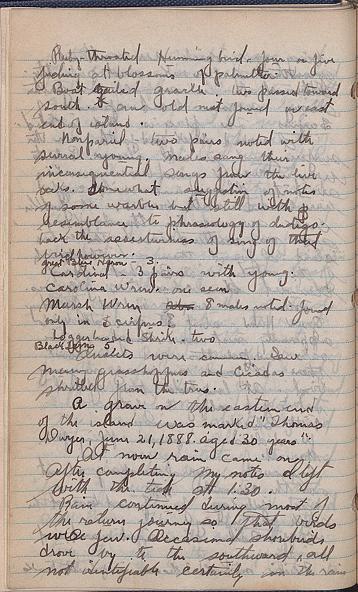 Ruby-throated Hummingbird - four or five
feeding at blossoms of palmetto.
Boat-tailed grackle - two passed toward
south. & one old nest found on east
end of island.
Nonpareil - two pairs noted with
several young. Males sang their
inconsequential songs from the live
oaks. Somewhat suggestive of notes
of some warbler but still with
resemblance to phraseology of indigo.
Lack the assertiveness of song of that
bird however.
Great Blue Heron - 3.
Cardinal - 3 pairs with young.
Carolina Wren - one seen
Marsh Wren 8 males noted. found
only in Scirpus?
Loggerhead Shrike two
Black
were common. Saw
many grasshoppers and Cicadas
shrilled from the trees.
A grave on the eastern end
of the island was marked "Thomas
June 21, 1888. aged 30 years".
At noon rain came on
After completing my notes I left
with the tide at 1:30.
Rain continued during most of
the return journey so that birds
were few. Occasional shorebirds
drove by to the southward, all
not identifiable certainly in the rain